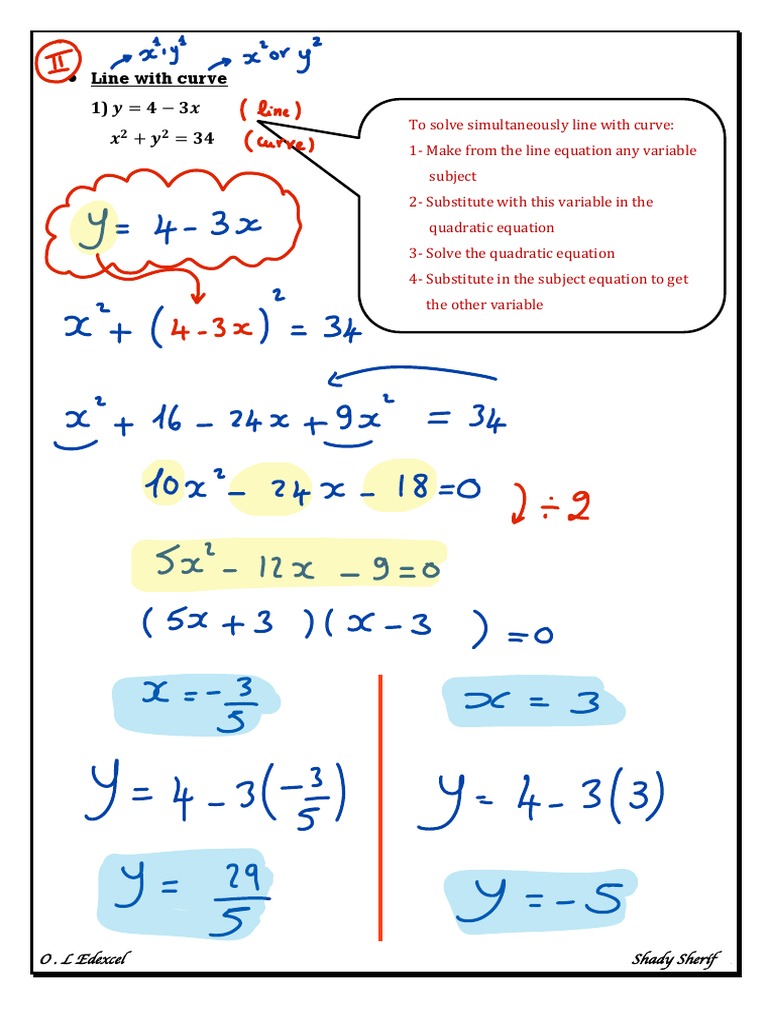 II
x¹, y¹
x² or y²
• Line with curve
1) y = 4 − 3x (line)
x² + y² = 34 (curve)
To solve simultaneously line with curve:
1- Make from the line equation any variable
subject
2- Substitute with this variable in the
quadratic equation
3- Solve the quadratic equation
4- Substitute in the subject equation to get
the other variable
y = 4 - 3x
x² + (4 - 3x)² = 34
x² + 16 - 24x + 9x² = 34
10x² - 24x - 18 = 0
÷ 2
5x² - 12x - 9 = 0
(5x + 3 )(x - 3 ) = 0
x = -3/5
x = 3
y = 4 - 3(-3/5)
y = 4 - 3(3)
y = 29/5
y = -5
O . L Edexcel
Shady Sherif